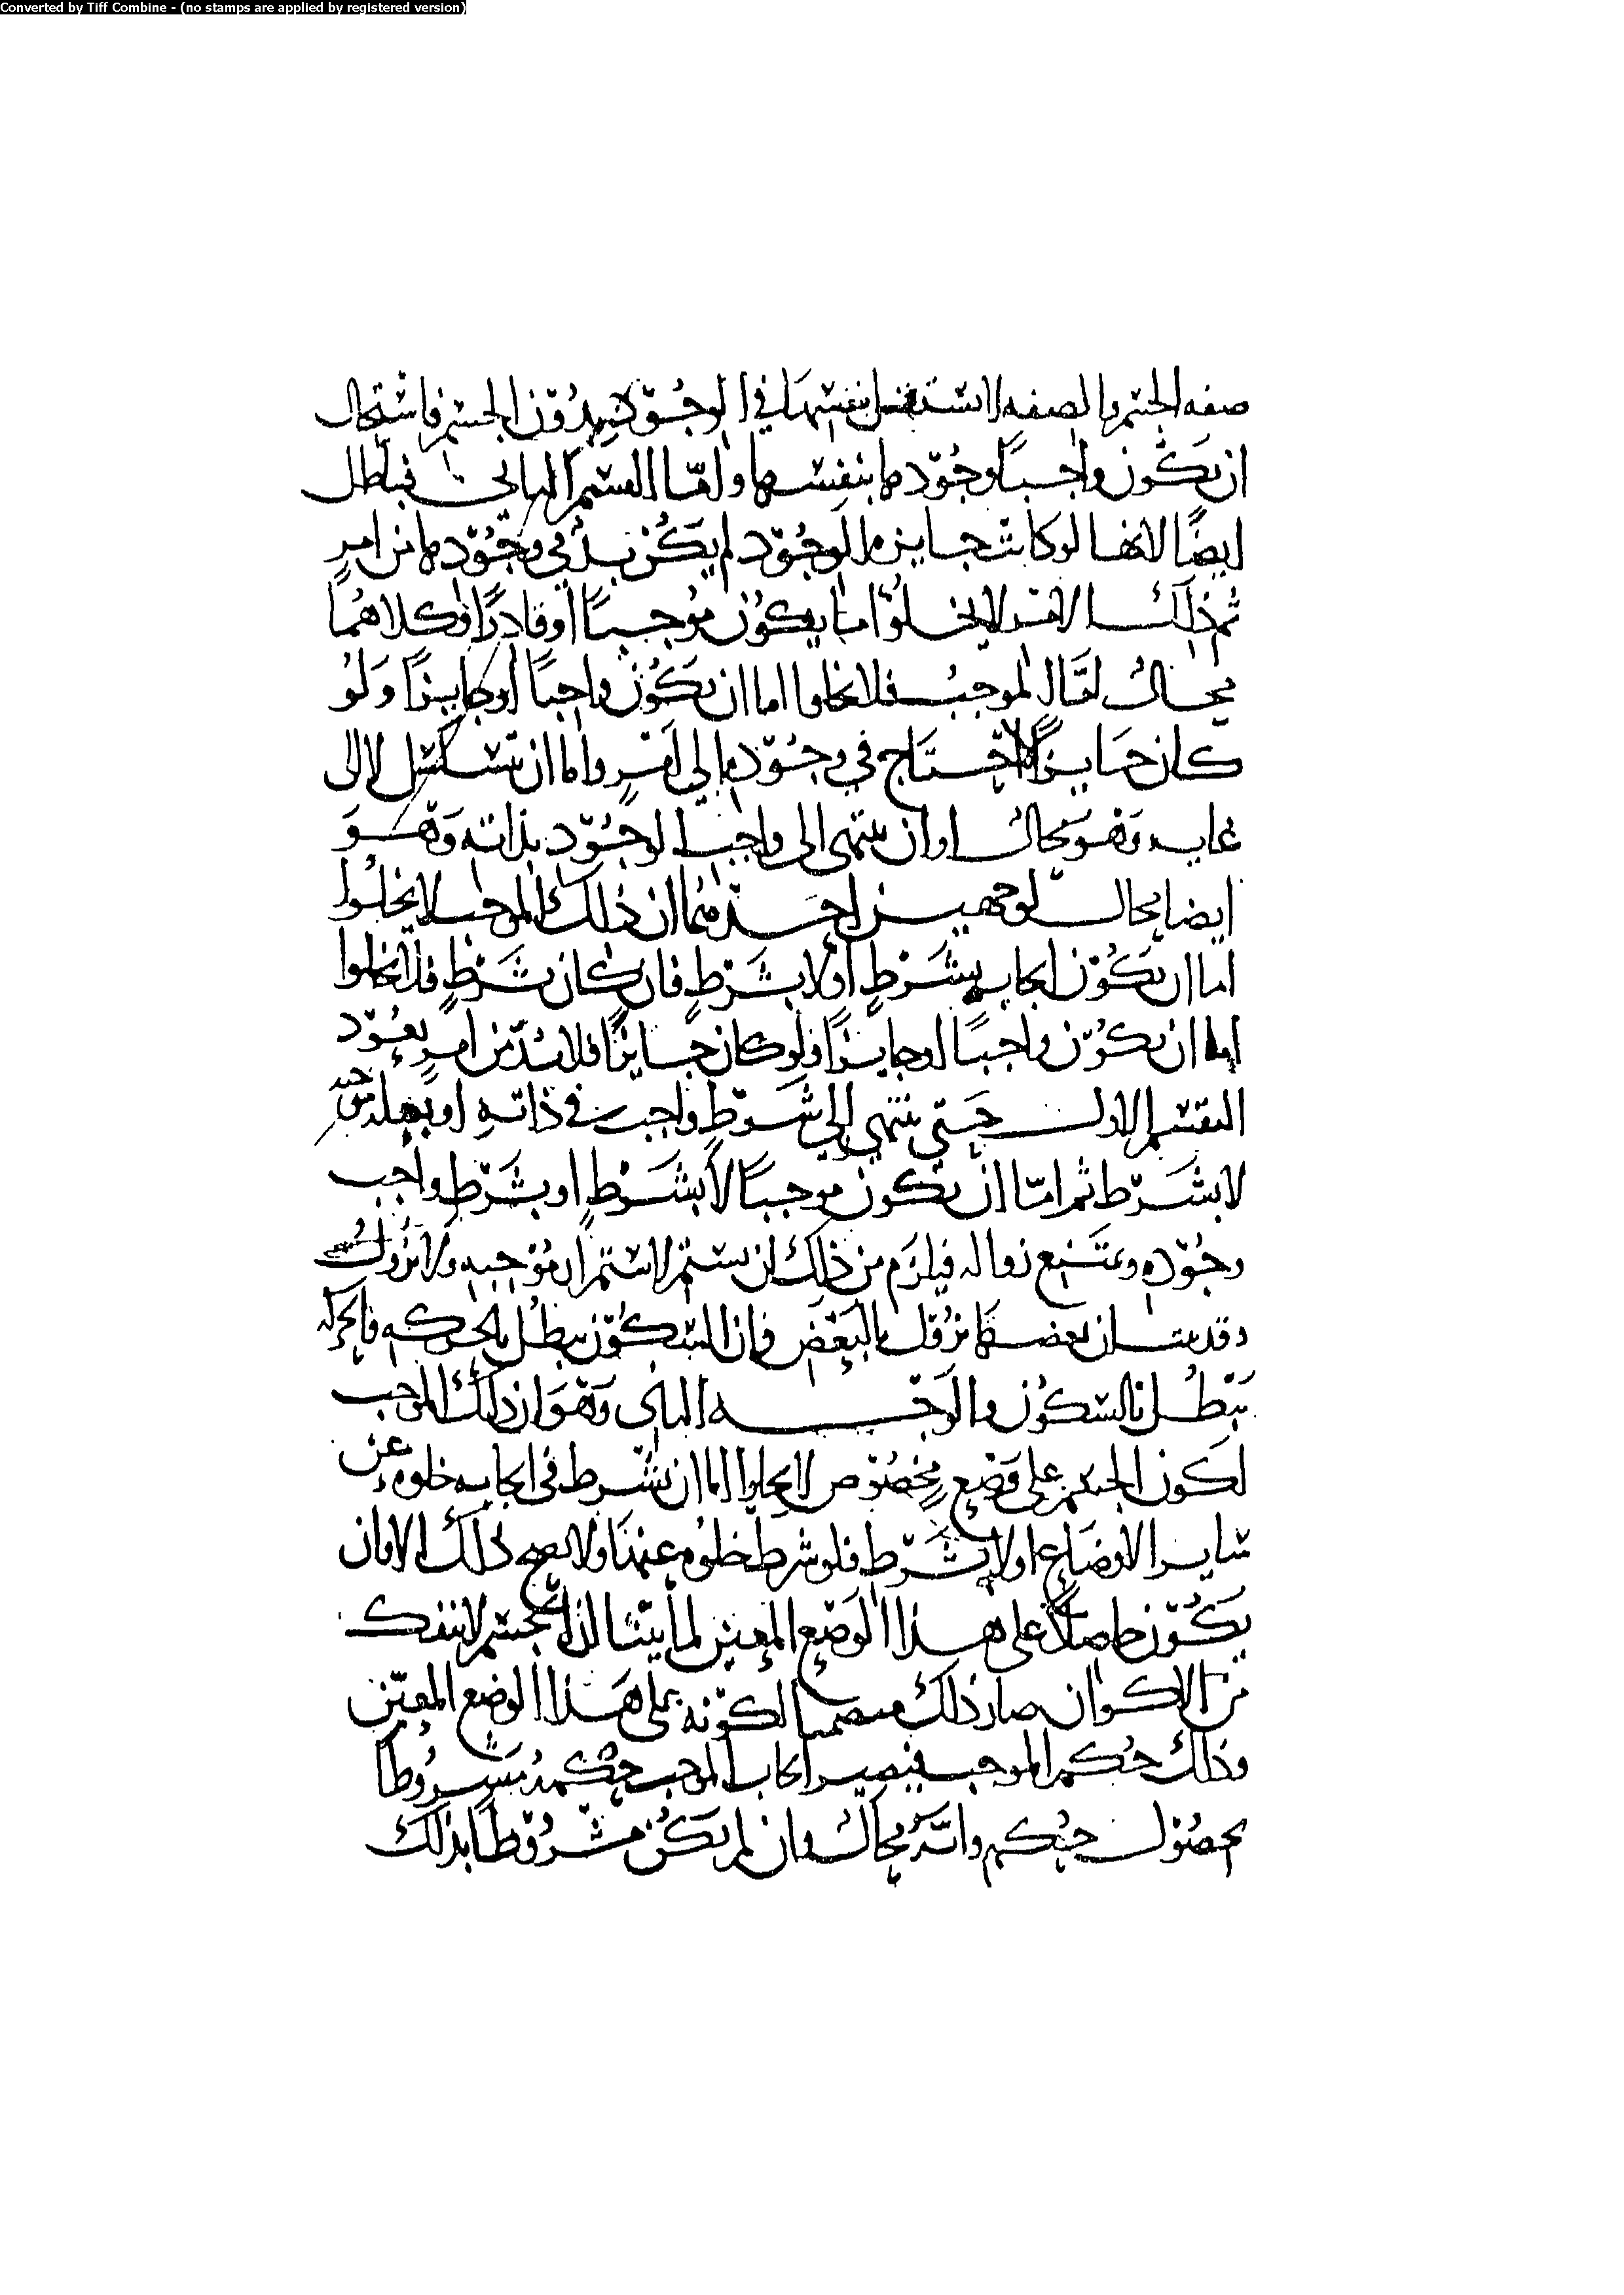 Converted by Tiff Combine - (no stamps are applied by registered version)
صفه الجسم والصفه لا تستقل بنفسها في الوجود بدون الجسم فاستحال
ان يكون واجبًا وجودها بنفسها وامّا القسم الثاني فباطل
ايضًا لانها لو كانت جايزه الوجود لم يكن بدّ في وجودها من امرٍ
ثم ذلك الامر لا يخلوا اما يكون موجبًا او قادرًا وكلاهما
محال الموجب فلا يخلوا اما ان يكون واجبًا او جايزًا ولو
كان جايزًا لاحتاج في وجوده الي امر واما ان يتسلسل لا الى
غايه وهو محال او ان ينتهى الى واجب الوجود بذاته وهو
ايضا محال لوجهين احدهما ان ذلك الموجب لا يخلوا
اما ان يكون ايجابه بشرطٍ اولا بشرطٍ فان كان بشرطٍ فلا يخلوا
اما ان يكون واجبًا او جايزًا ولو كان جايزًا فلا بدّ من امرٍ يعود
التقسيم الاول حتى ينتهي الي شرطٍ واجب في ذاته او
لا بشرط ثم امّا ان يكون موجبًا لا بشرطٍ او بشرط واجب
وجوده ويمتنع زواله فيلزم من ذلك ان يستمر لاستمرار موجبه ولا يزول
وقد بينا ان بعضها يزول بالبعض فان السكون يبطل بالحركه والحركه
تبطل بالسكون والوجه الثاني وهو ان ذلك الموجب
لكون الجسم على وضعٍ مخصوص لا يخلوا اما ان يشرط في ايجابه خلوه عن
ساير الاوضاع اولا يشرط فلو شرط خلوه عنها ولا يصح ذلك الا بان
يكون حاصلًا على هذا الوضع المعين لما بيّنا ان الجسم لا ينفك
من الاكوان صار ذلك لكونه على هذا الوضع المعيّن
وذلك حكم الموجب فيصير ايجاب الموجب حكمه مشروطًا
بحصول حكمه وانه محال وان لم يكن مشروطًا بذلك